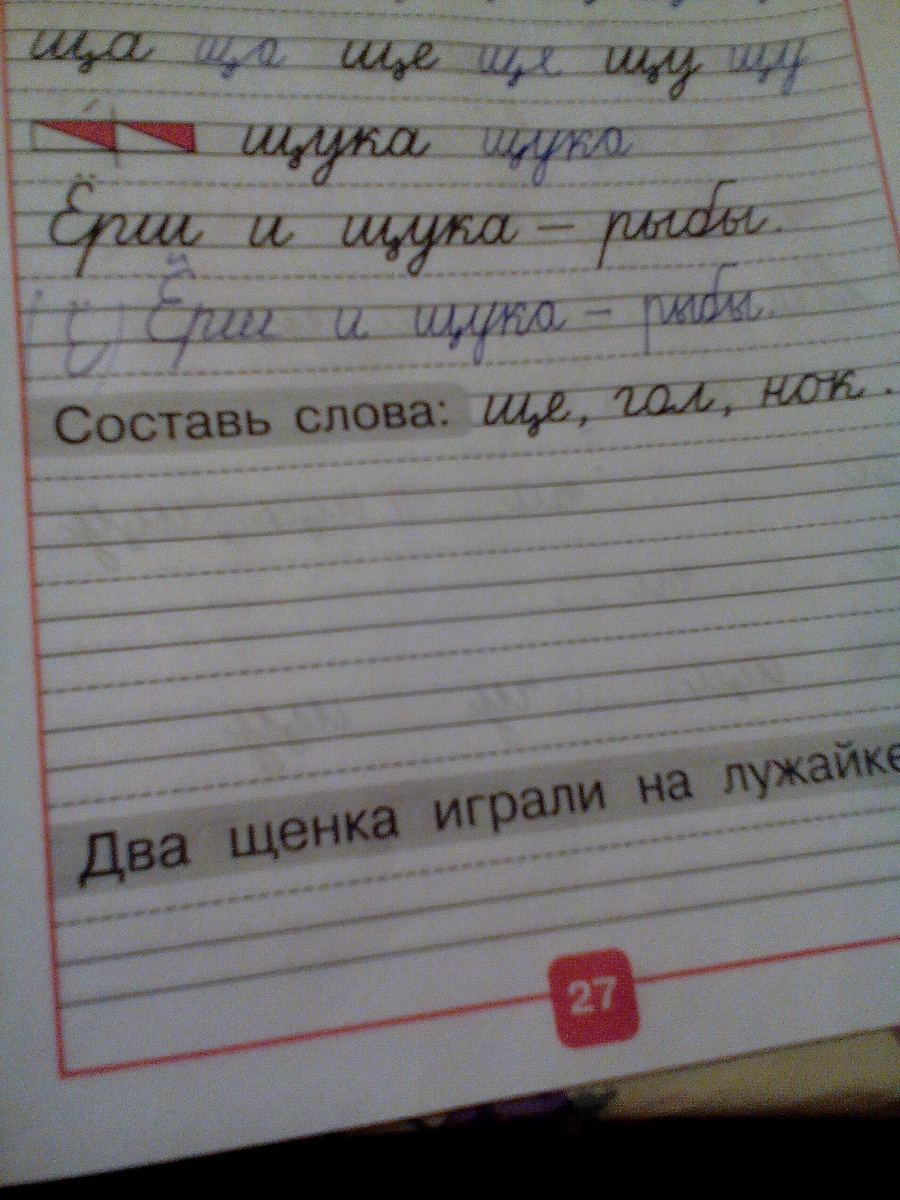 ща ща ще ще щу щу
щука щука
Ёрш и щука – рыбы.
(Ё) Ёрш и щука – рыбы.
Составь слова: ще, гол, нок.
Два щенка играли на лужайке
27